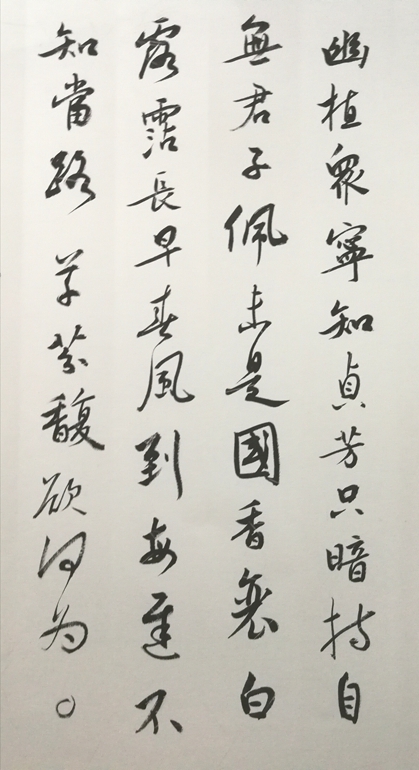 幽植眾寧知貞芳只暗持自
無君子佩未是國香衰白
露霑長早春風到每遲不
知當路草芬馥欲何為。